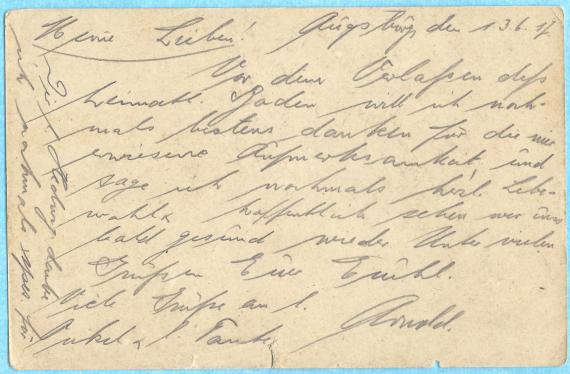 Meine Lieben! Augsburg den 13.6.17.
Vor dem Verlassen des
heimatl. Boden will ich noch-
mals bestens danken für die mir
erwiesene Aufmerksamkeit und
sage ich nochmals herzl. Lebe-
wohl & hoffentlich sehen wir uns
bald gesund wieder. Unter vielen
Grüßen Euer
Viele Grüße an l. Arnold.
Onkel & l. Tante
Dir l. Hedwig danke
ich nochmals für